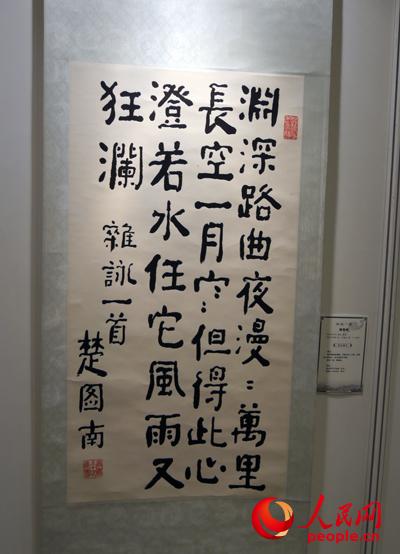 淵深路曲夜漫〻萬里
長空一月寒但得此心
澄若水任它風雨又
狂瀾
雜詠一首
楚图南
人民网
people.cn